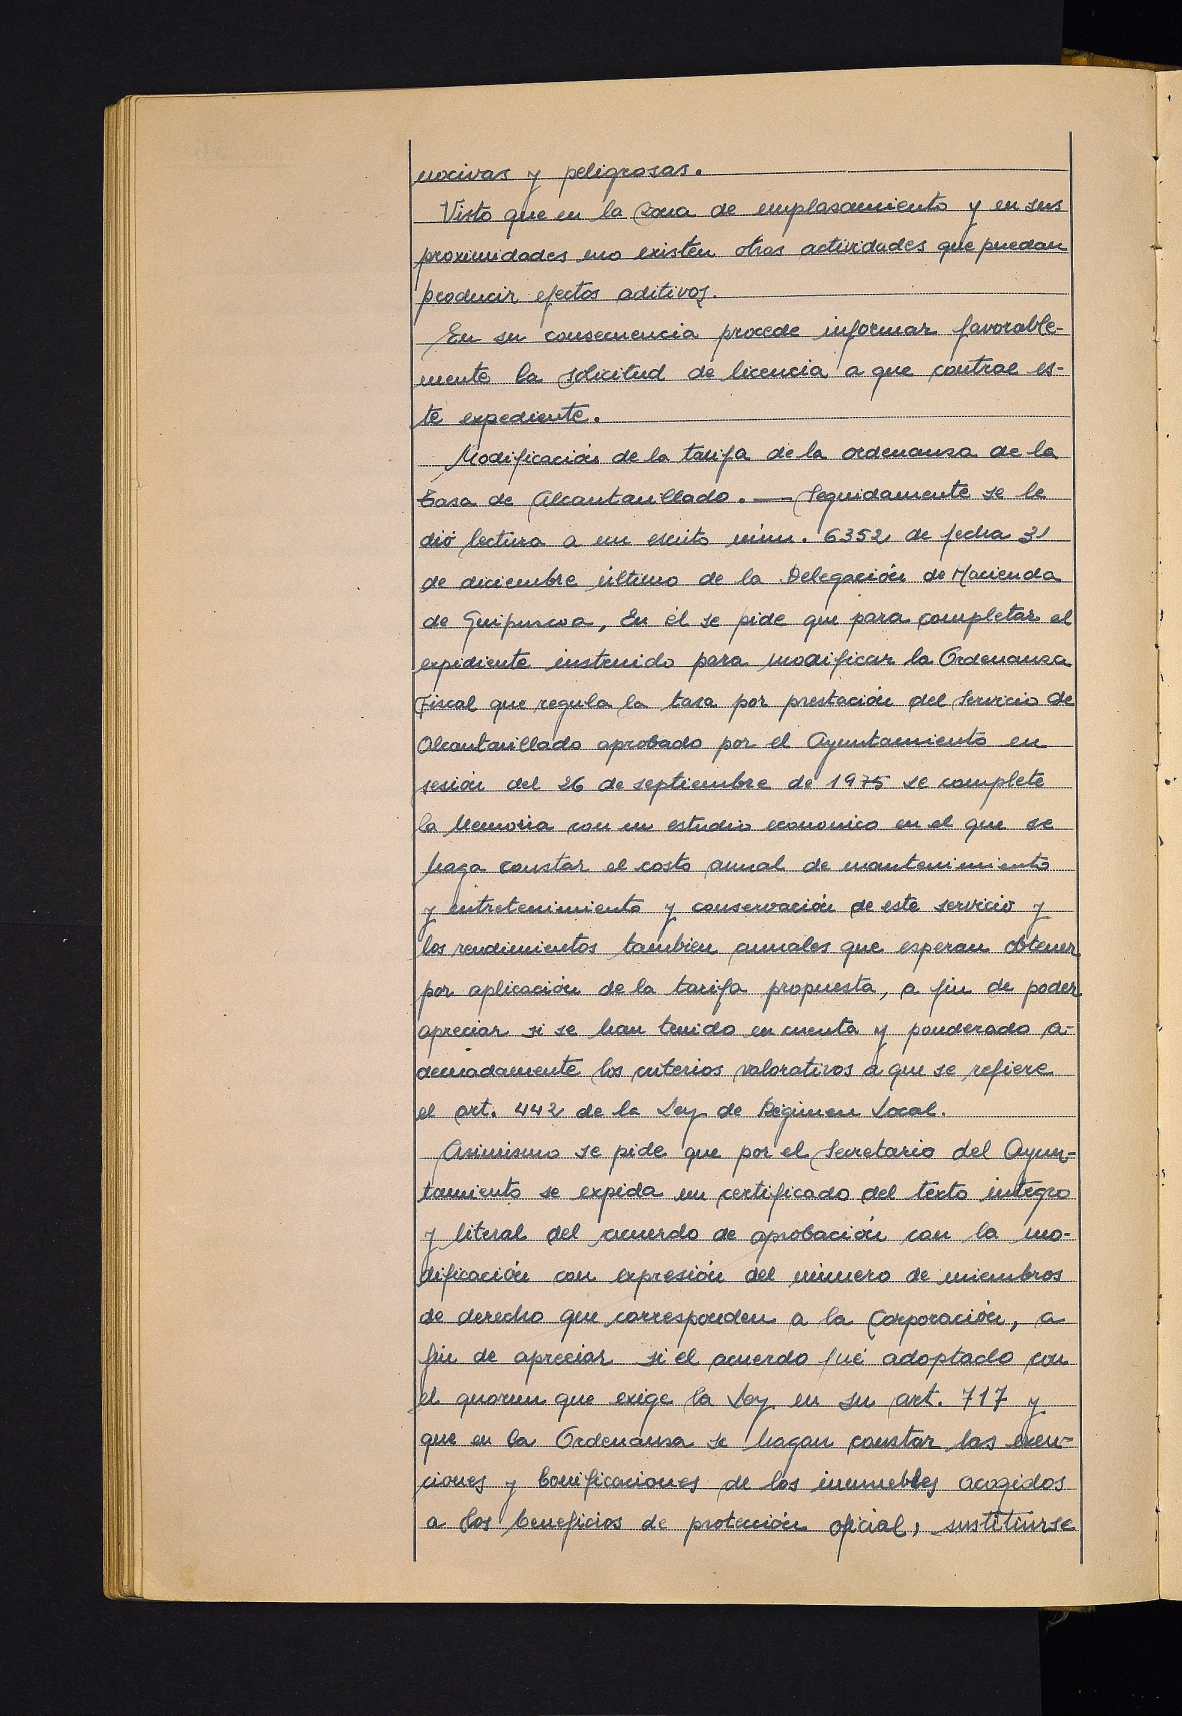 nocivas y peligrosas.
Visto que en la Zona de emplasamiento y en sus
proximidades no existen otras actividades que puedan
producir efectos aditivos.
En su consecuencia procede informar favorable-
mente la solicitud de licencia a que contrae es-
te expediente.
Modificación de la tarifa de la ordenansa de la
Tasa de Alcantarillado. — Seguidamente se le
dió lectura a un escrito núm. 6352 de fecha 31
de diciembre último de la Delegación de Hacienda
de Guipuscoa, En él se pide que para completar el
expidiente instruido para modificar la Ordenansa
Fiscal que regula la tasa por prestación del Servicio de
Alcantarillado aprobado por el Ayuntamiento en
sesión del 26 de septiembre de 1975 se complete
la Memoria con un estudio economico en el que se
haga constar el costo anual de mantenimiento
y entretenimiento y conservación de este servicio y
los rendimientos tambien anuales que esperan obtener
por aplicación de la tarifa propuesta, a fin de poder
apreciar si se han tenido en cuenta y ponderado a-
decuadamente los criterios valorativos a que se refiere
el art. 442 de la Ley de Régimen Local.
Asimismo se pide que por el Secretario del Ayun-
tamiento se expida un certificado del texto integro
y literal del acuerdo de aprobación con la mo-
dificación con expresión del número de miembros
de derecho que corresponden a la Corporación, a
fin de apreciar si el acuerdo fué adoptado con
el quorum que exige la Ley en su art. 717 y
que en la Ordenansa se hagan constar las exen-
ciones y bonificaciones de los inmuebles acogidos
a los beneficios de protección oficial, sustituirse